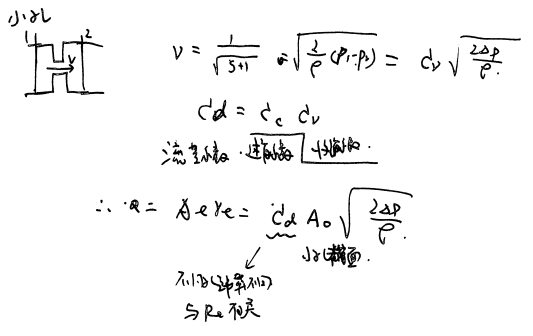 小孔
1 2
v
v = 1/√(ζ+1) · √(2/ρ (p₁-p₂)) = Cv √(2Δp/ρ)
Cd = Cc Cv
流量系数 · 速度系数 收缩系数.
∴ q = Aeve = Cd A₀ √(2Δp/ρ).
小孔截面.
与Re有关